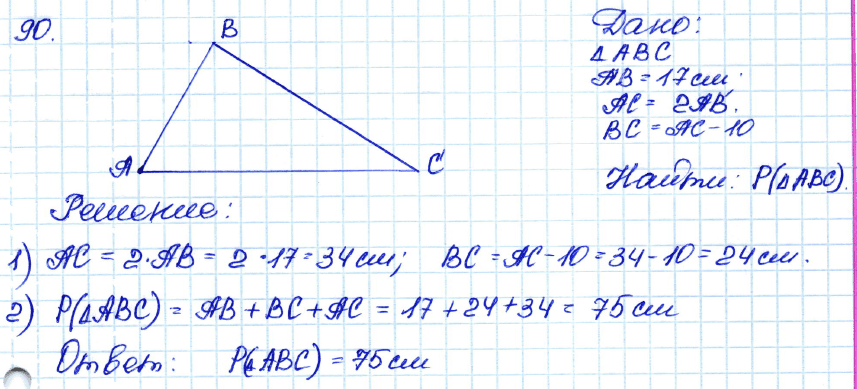 90.
B
A
C
Дано:
△ABC
AB = 17 см.
AC = 2AB.
BC = AC - 10
Найти: P(△ABC).
Решение:
1) AC = 2·AB = 2·17 = 34 см; BC = AC - 10 = 34 - 10 = 24 см.
2) P(△ABC) = AB + BC + AC = 17 + 24 + 34 = 75 см
Ответ: P(△ABC) = 75 см